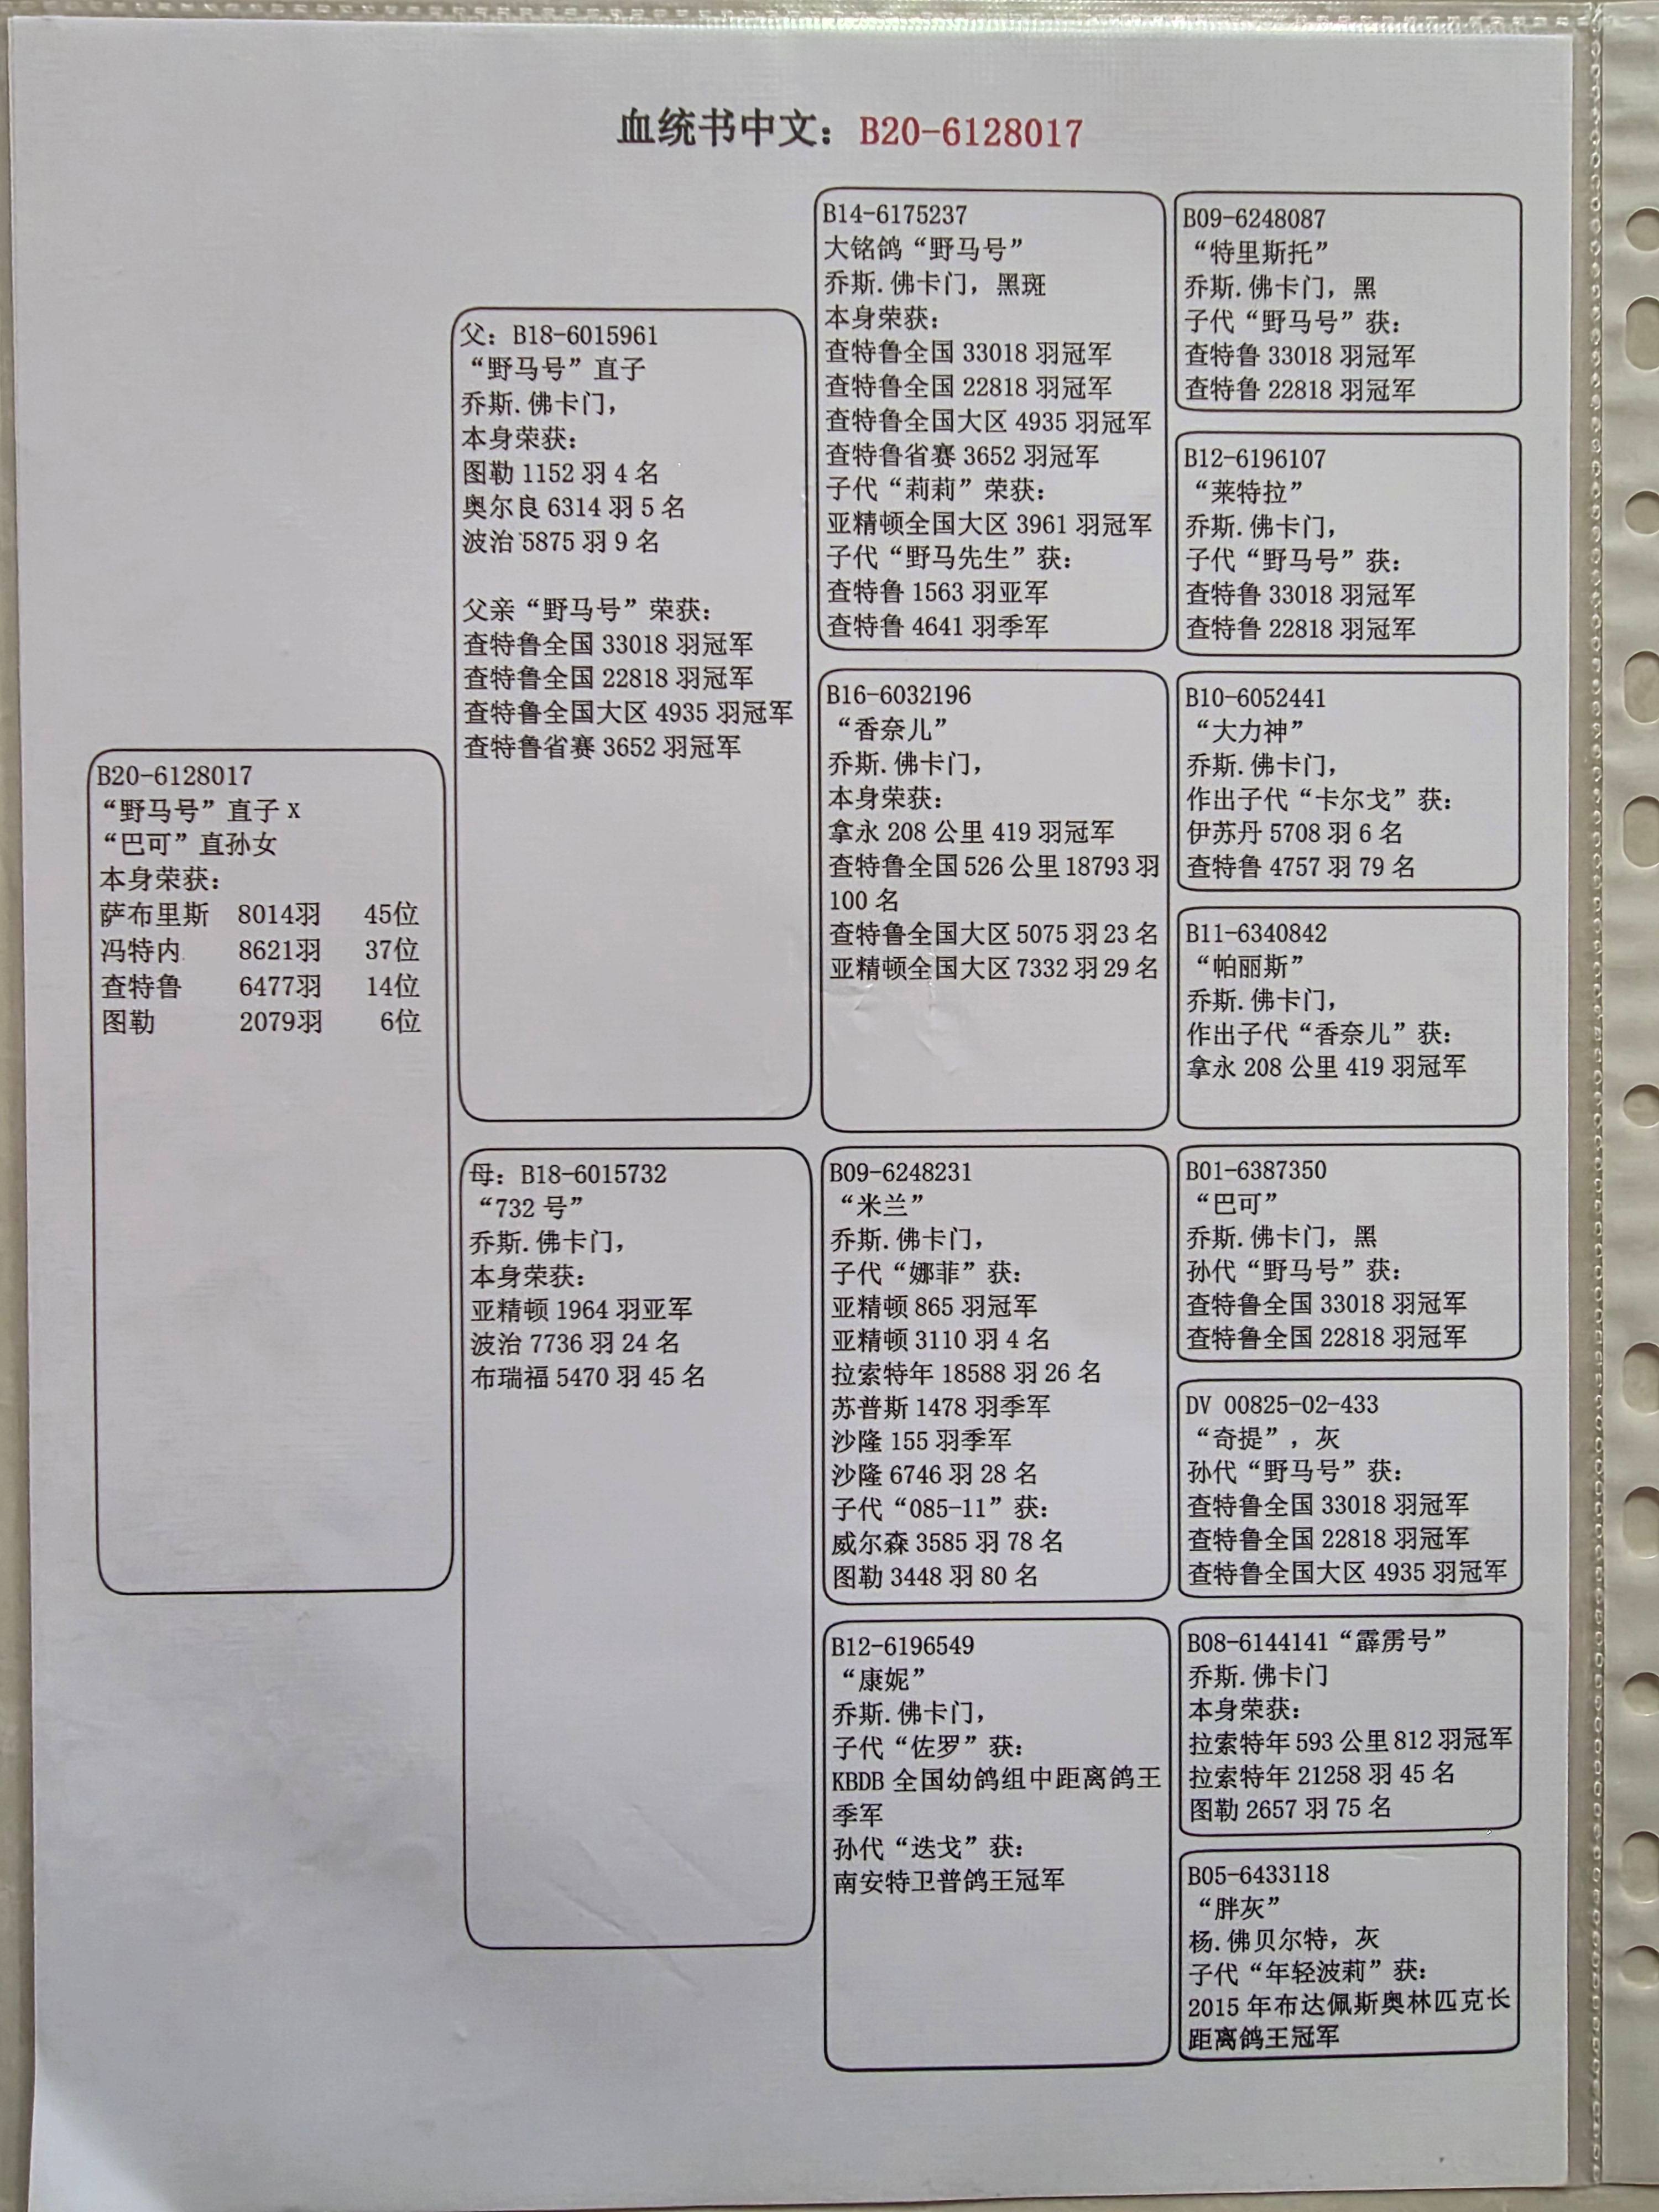 血统书中文：B20-6128017
B20-6128017
“野马号”直子 x
“巴可”直孙女
本身荣获：
萨布里斯 8014羽 45位
冯特内 8621羽 37位
查特鲁 6477羽 14位
图勒 2079羽 6位
父：B18-6015961
“野马号”直子
乔斯.佛卡门，
本身荣获：
图勒 1152 羽 4 名
奥尔良 6314 羽 5 名
波治 5875 羽 9 名
父亲“野马号”荣获：
查特鲁全国 33018 羽冠军
查特鲁全国 22818 羽冠军
查特鲁全国大区 4935 羽冠军
查特鲁省赛 3652 羽冠军
母：B18-6015732
“732 号”
乔斯.佛卡门，
本身荣获：
亚精顿 1964 羽亚军
波治 7736 羽 24 名
布瑞福 5470 羽 45 名
B14-6175237
大铭鸽“野马号”
乔斯.佛卡门，黑斑
本身荣获：
查特鲁全国 33018 羽冠军
查特鲁全国 22818 羽冠军
查特鲁全国大区 4935 羽冠军
查特鲁省赛 3652 羽冠军
子代“莉莉”荣获：
亚精顿全国大区 3961 羽冠军
子代“野马先生”获：
查特鲁 1563 羽亚军
查特鲁 4641 羽季军
B16-6032196
“香奈儿”
乔斯.佛卡门，
本身荣获：
拿永 208 公里 419 羽冠军
查特鲁全国 526 公里 18793 羽
100 名
查特鲁全国大区 5075 羽 23 名
亚精顿全国大区 7332 羽 29 名
B09-6248231
“米兰”
乔斯.佛卡门，
子代“娜菲”获：
亚精顿 865 羽冠军
亚精顿 3110 羽 4 名
拉索特年 18588 羽 26 名
苏普斯 1478 羽季军
沙隆 155 羽季军
沙隆 6746 羽 28 名
子代“085-11”获：
威尔森 3585 羽 78 名
图勒 3448 羽 80 名
B12-6196549
“康妮”
乔斯.佛卡门，
子代“佐罗”获：
KBDB 全国幼鸽组中距离鸽王
季军
孙代“迭戈”获：
南安特卫普鸽王冠军
B09-6248087
“特里斯托”
乔斯.佛卡门，黑
子代“野马号”获：
查特鲁 33018 羽冠军
查特鲁 22818 羽冠军
B12-6196107
“莱特拉”
乔斯.佛卡门，
子代“野马号”获：
查特鲁 33018 羽冠军
查特鲁 22818 羽冠军
B10-6052441
“大力神”
乔斯.佛卡门，
作出子代“卡尔戈”获：
伊苏丹 5708 羽 6 名
查特鲁 4757 羽 79 名
B11-6340842
“帕丽斯”
乔斯.佛卡门，
作出子代“香奈儿”获：
拿永 208 公里 419 羽冠军
B01-6387350
“巴可”
乔斯.佛卡门，黑
孙代“野马号”获：
查特鲁全国 33018 羽冠军
查特鲁全国 22818 羽冠军
DV 00825-02-433
“奇提”，灰
孙代“野马号”获：
查特鲁全国 33018 羽冠军
查特鲁全国 22818 羽冠军
查特鲁全国大区 4935 羽冠军
B08-6144141“霹雳号”
乔斯.佛卡门
本身荣获：
拉索特年 593 公里 812 羽冠军
拉索特年 21258 羽 45 名
图勒 2657 羽 75 名
B05-6433118
“胖灰”
杨.佛贝尔特，灰
子代“年轻波莉”获：
2015 年布达佩斯奥林匹克长
距离鸽王冠军